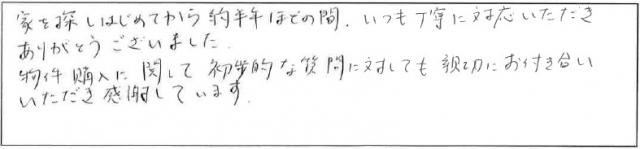 家を探しはじめてから約半年ほどの間、いつも丁寧に対応いただき
ありがとうございました。
物件購入に関して初歩的な質問に対しても親切にお付き合い
いただき感謝しています。